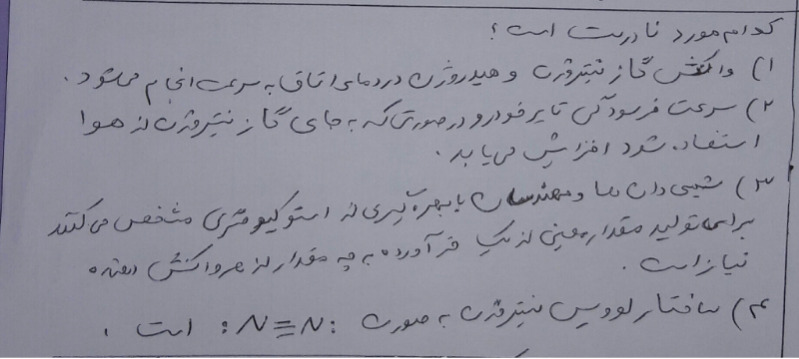 کدام مورد نادرست است؟
۱) واکنش گاز نیتروژن و هیدروژن در دمای اتاق به سرعت انجام می‌شود.
۲) سرعت فرسودگی تایر خودرو در صورتی که به جای گاز نیتروژن از هوا
استفاده شود افزایش می‌یابد.
۳) شیمی‌دان‌ها و مهندسان با بهره‌گیری از استوکیومتری مشخص می‌کنند
برای تولید مقدار معینی از یک فرآورده به چه مقدار از هر واکنش دهنده
نیاز است.
۴) ساختار لوویس نیتروژن به صورت :N≡N: است.